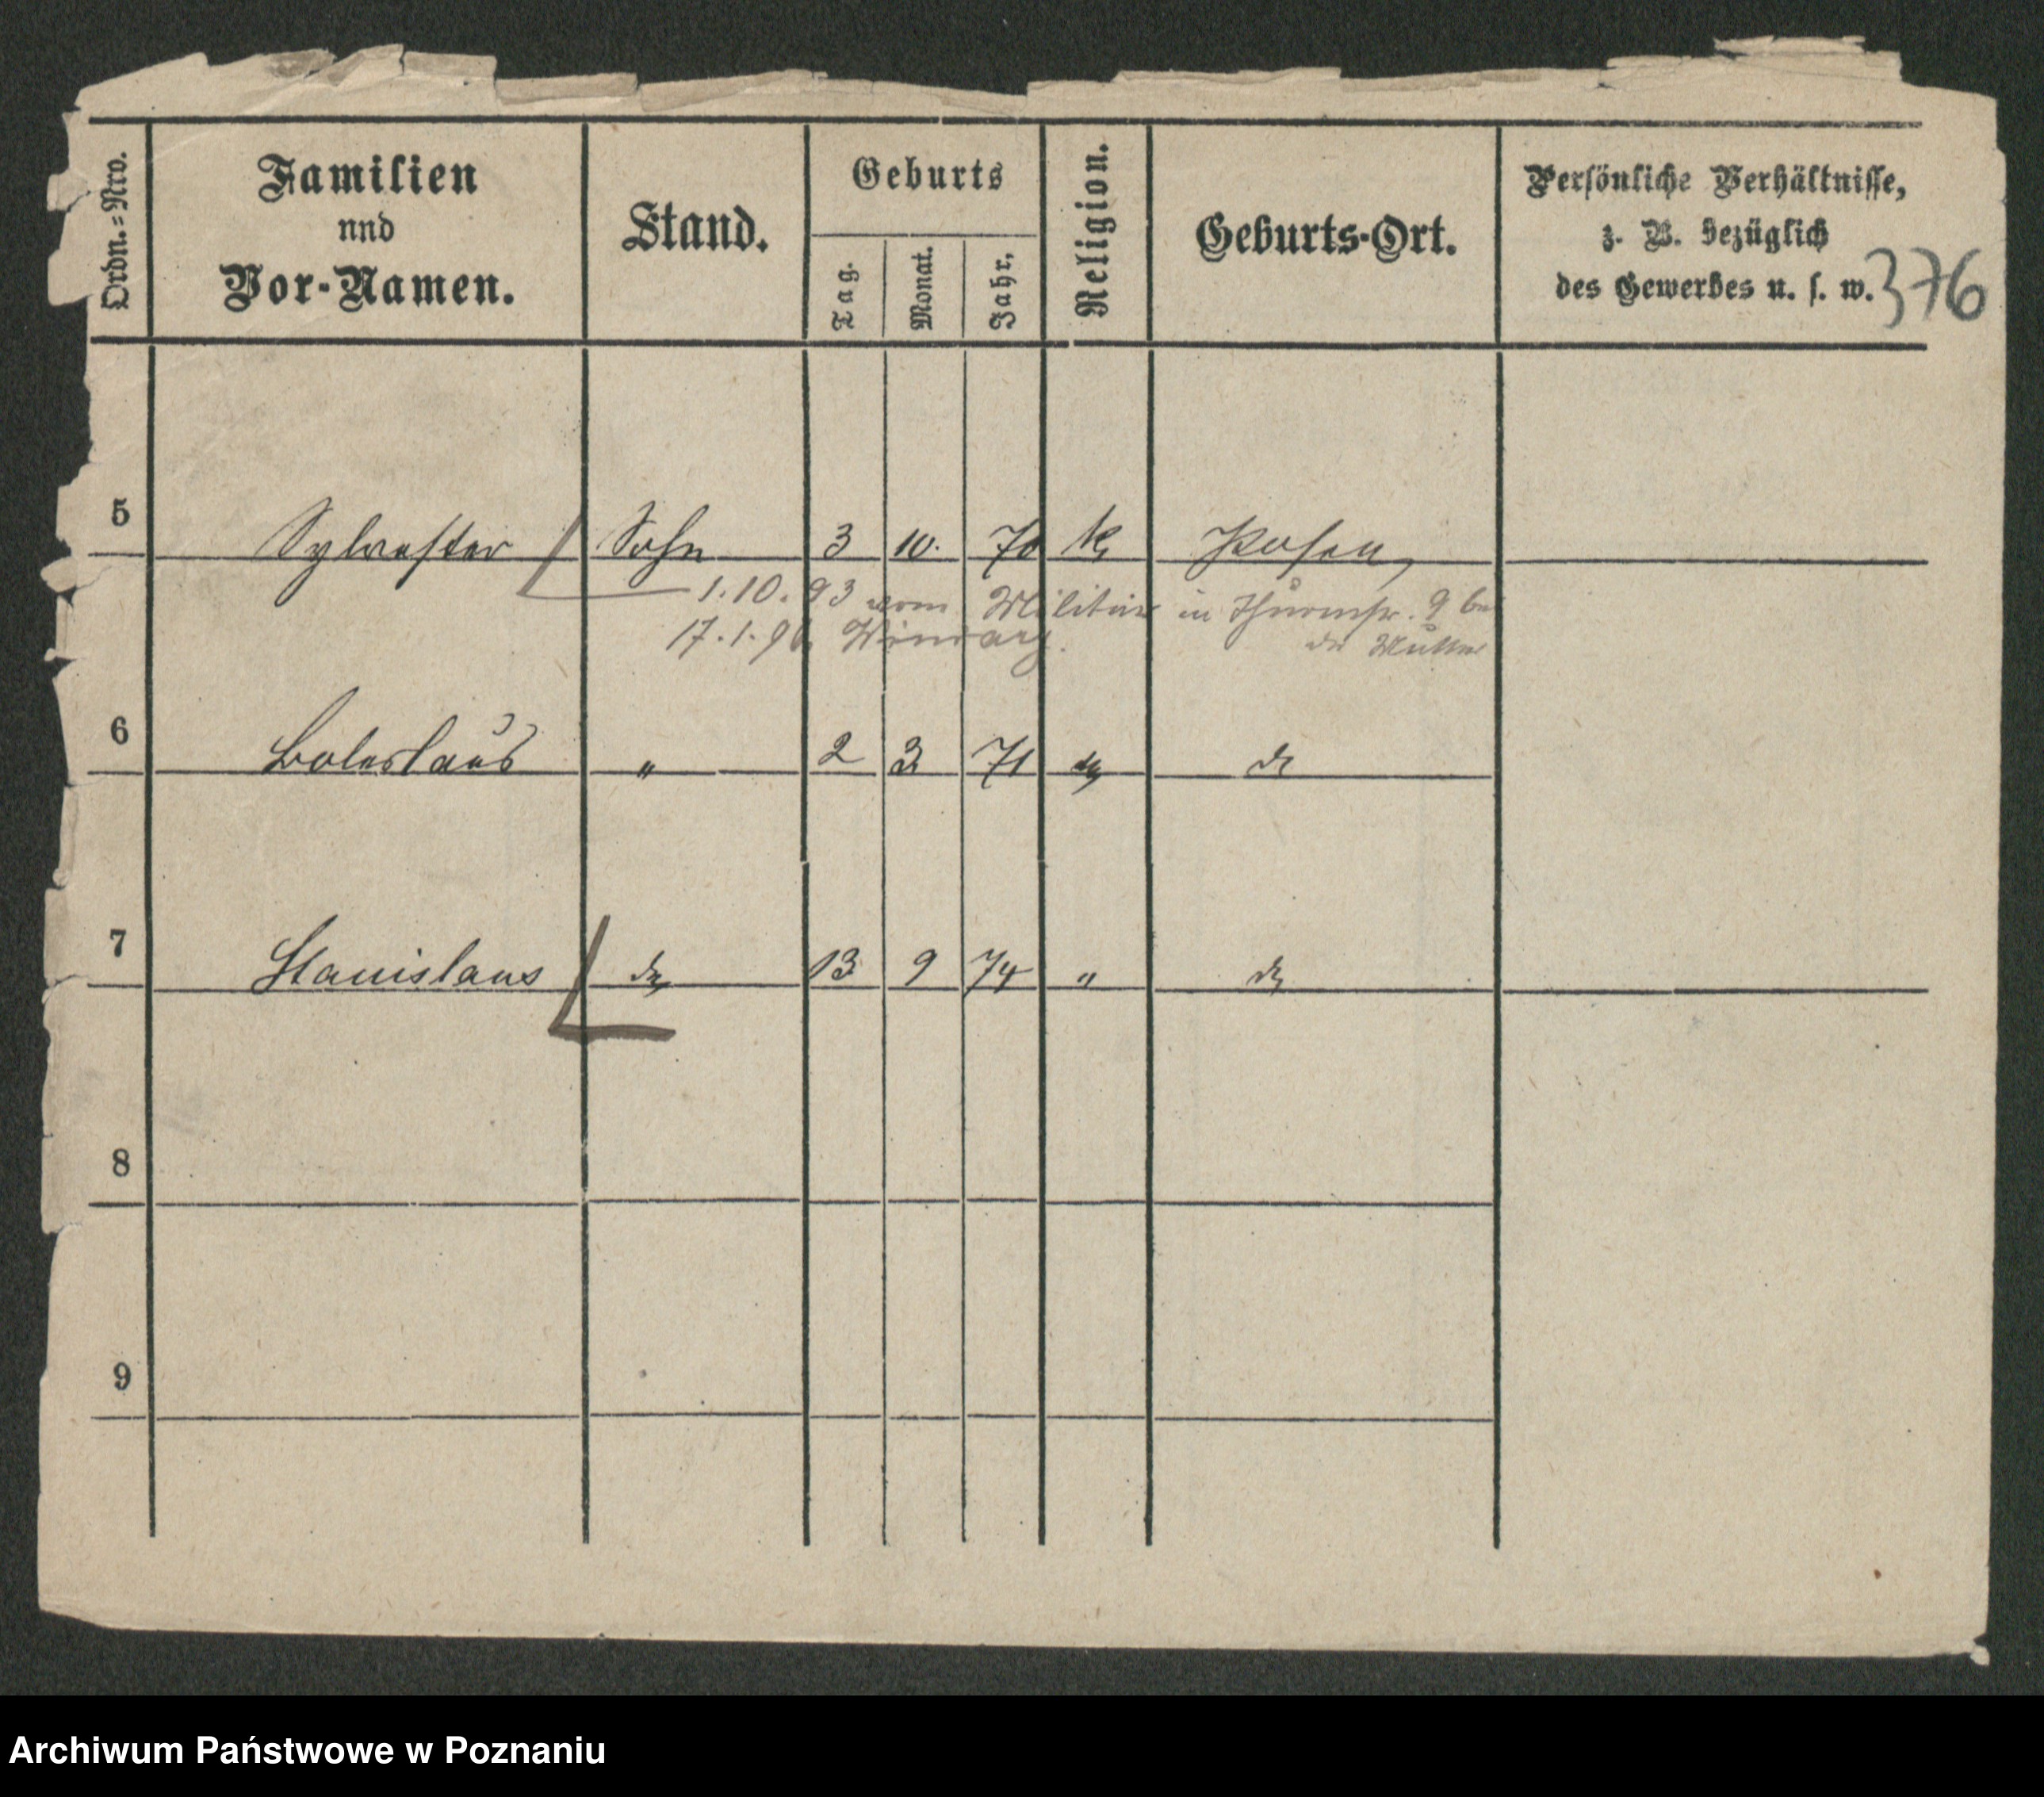 Ordn.=Nro.
Familien
nnd
Vor-Namen.
Stand.
Geburts
Tag.
Monat.
Jahr,
Religion.
Geburts-Ort.
Persönliche Verhältnisse,
z. B. bezüglich
des Gewerbes u. s. w.
376
5 Sylvester Sohn 3 10. 70 k Posen
1.10.93 vom Militär in Thurmstr. 9 bei
der Mutter
17.1.96 Winiary.
6 Boleslaus " 2 3 71 do do
7 Stanislaus do 13 9 74 " do
8
9
Archiwum Państwowe w Poznaniu